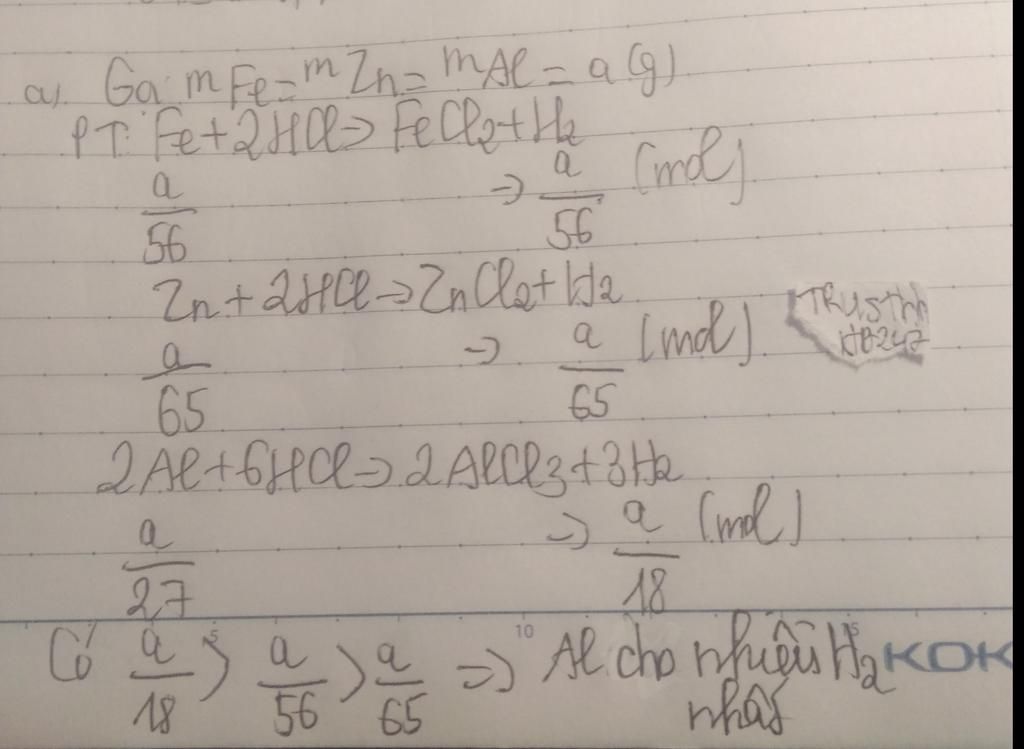 a). Gọi mFe = mZn = mAl = a (g)
PT: Fe + 2HCl → FeCl2 + H2
a/56 → a/56 (mol)
Zn + 2HCl → ZnCl2 + H2
a/65 → a/65 (mol)
2Al + 6HCl => 2AlCl3 + 3H2
a/27 → a/18 (mol)
5 10 15
Có a/18 > a/56 > a/65 => Al cho nhiều H2
nhất
KOK